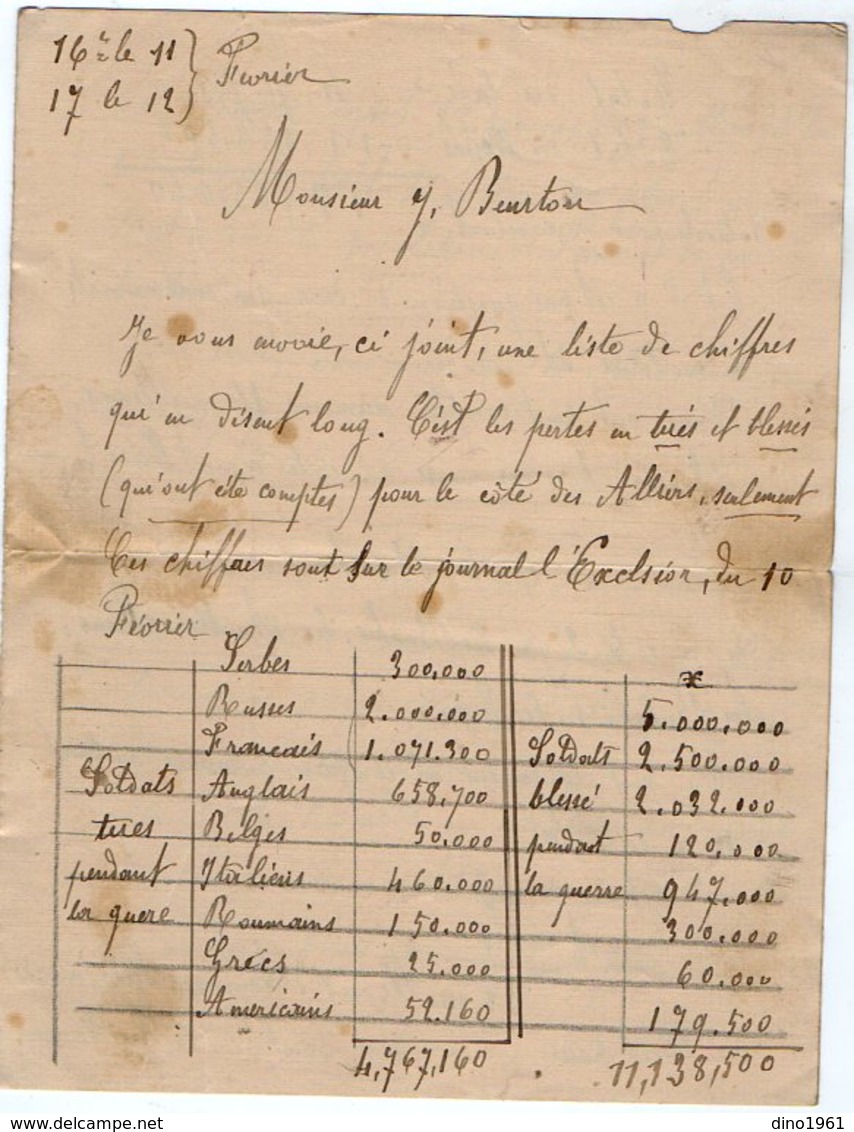 16 le 11 } Février
17 le 12 }
Monsieur J. Beurton
Je vous envoie, ci joint, une liste de chiffres
qui en disent long. C'est les pertes en tués et blessés
(qu'ont été comptes) pour le côté des Alliers, seulement
Ces chiffres sont sur le journal l'Excelsior, du 10
Février
Serbes 300.000 x
Russes 2.000.000 5.000.000
Francais 1.071.300 Soldats 2.500.000
Soldats Anglais 658.700 blessé 2.032.000
tués Belges 50.000 pendant 120.000
pendant Italiens 460.000 la guerre 947.000
la guere Roumains 150.000 300.000
Grecs 25.000 60.000
Americains 52.160 179.500
4,767,160 11,138,500
dino1961